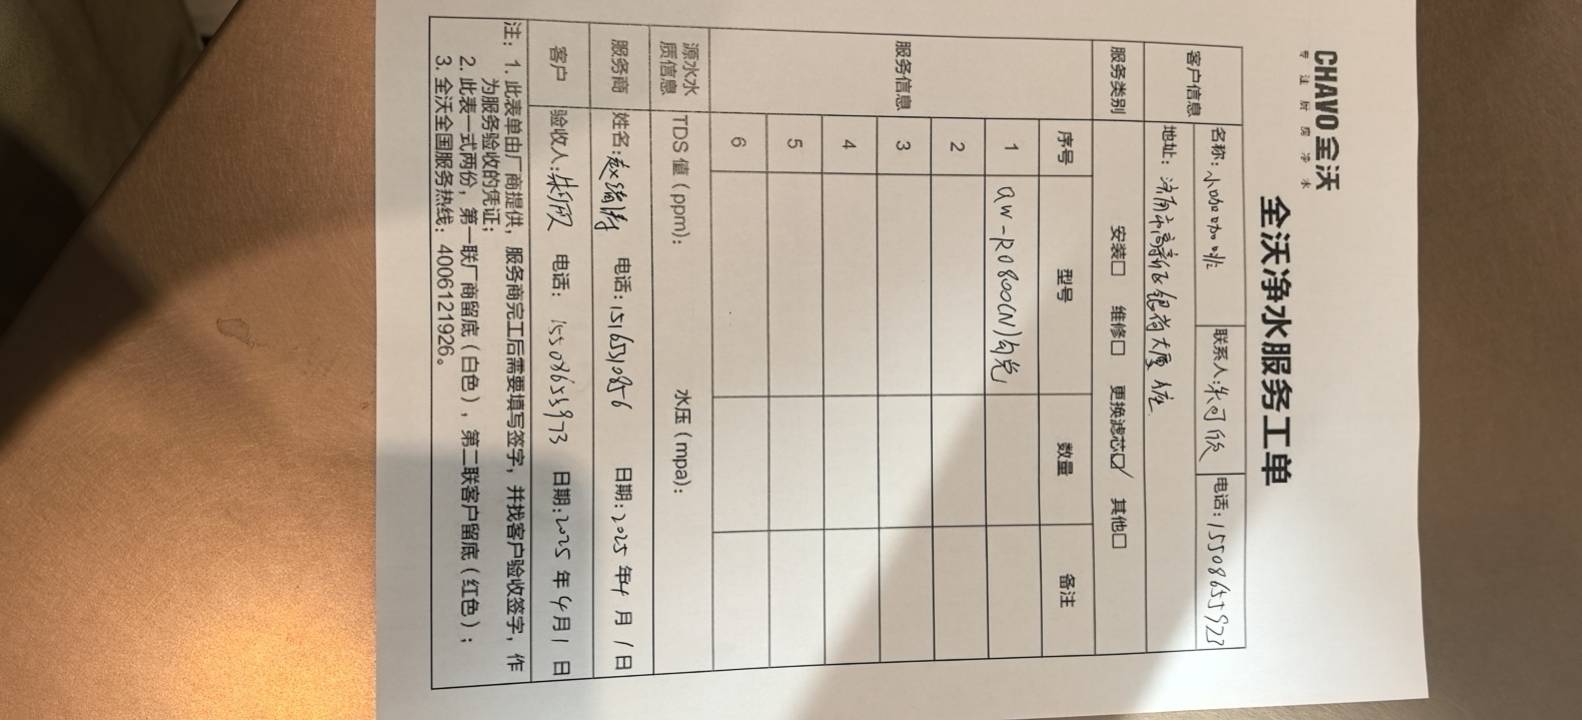 CHAVO 全沃
专注厨房净水
全沃净水服务工单
客户信息 名称：小咖咖啡 联系人：朱可欣 电话：
地址：济南市高新区银荷大厦
服务类别 安装□ 维修□ 更换滤芯☑ 其他□
服务信息 序号 型号 数量 备注
1 QW-RO800(N)
2
3
4
5
6
源水水质信息 TDS 值（ppm）： 水压（mpa）：
服务商 姓名： 电话：15165310856 日期：2025 年 4 月 1 日
客户 验收人： 电话： 日期：2025 年 4 月 1 日
注：1. 此表单由厂商提供，服务商完工后需要填写签字，并找客户验收签字，作
为服务验收的凭证；
2. 此表一式两份，第一联厂商留底（白色），第二联客户留底（红色）；
3. 全沃全国服务热线：4006121926。